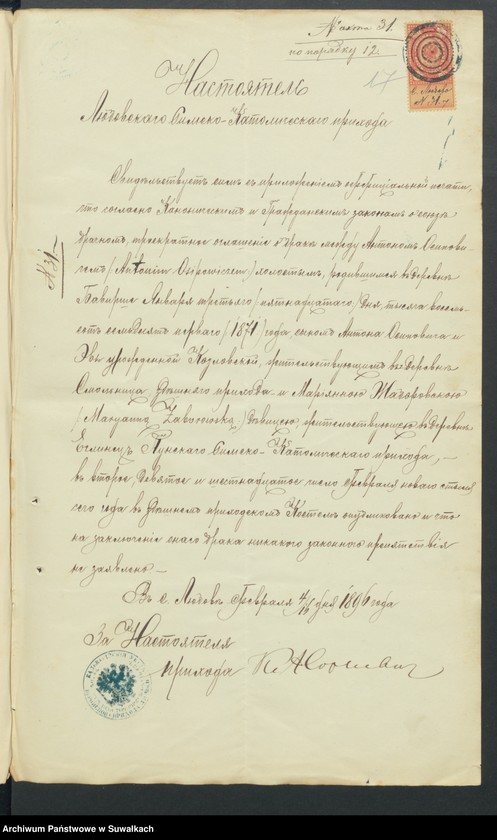 № акта 31.
по порядку 12.
17
с. Любовъ
№ 31
Настоятель
Любовскаго Римско-Католическаго прихода
Свидѣтельствуетъ симъ съ приложеніемъ оффиціальной печати,
что согласно Каноническимъ и Гражданскимъ законамъ о сеидѣ
брачномъ, троекратное оглашеніе о бракѣ между Антономъ Осипови-
чемъ (Antonim Osipowiczem) холостымъ, родившимся въ деревнѣ
Января третьяго (пятнадцатаго) дня, тысяча восемь-
сотъ семьдесятъ перваго (1871) года, сыномъ Антона Осиповича и
Эвы урожденной Козловской, жительствующимъ въ деревнѣ
Смольница здѣшняго прихода и Маріянною Жаборовскою
(Maryanną Żaborowską) дѣвицею, жительствующею въ деревнѣ
Еглинецъ Пунскаго Римско-Католическаго прихода, —
въ второе, девятое и шестнадцатое число Февраля новаго стиля
сего года въ здѣшнемъ приходскомъ Костелѣ опубликовано и что
на заключеніе онаго брака никакого законнаго препятствія
не заявлено —
Въ с. Любовѣ Февраля 4/16 дня 1896 года
За Настоятеля
прихода
№ 31
Archiwum Państwowe w Suwałkach